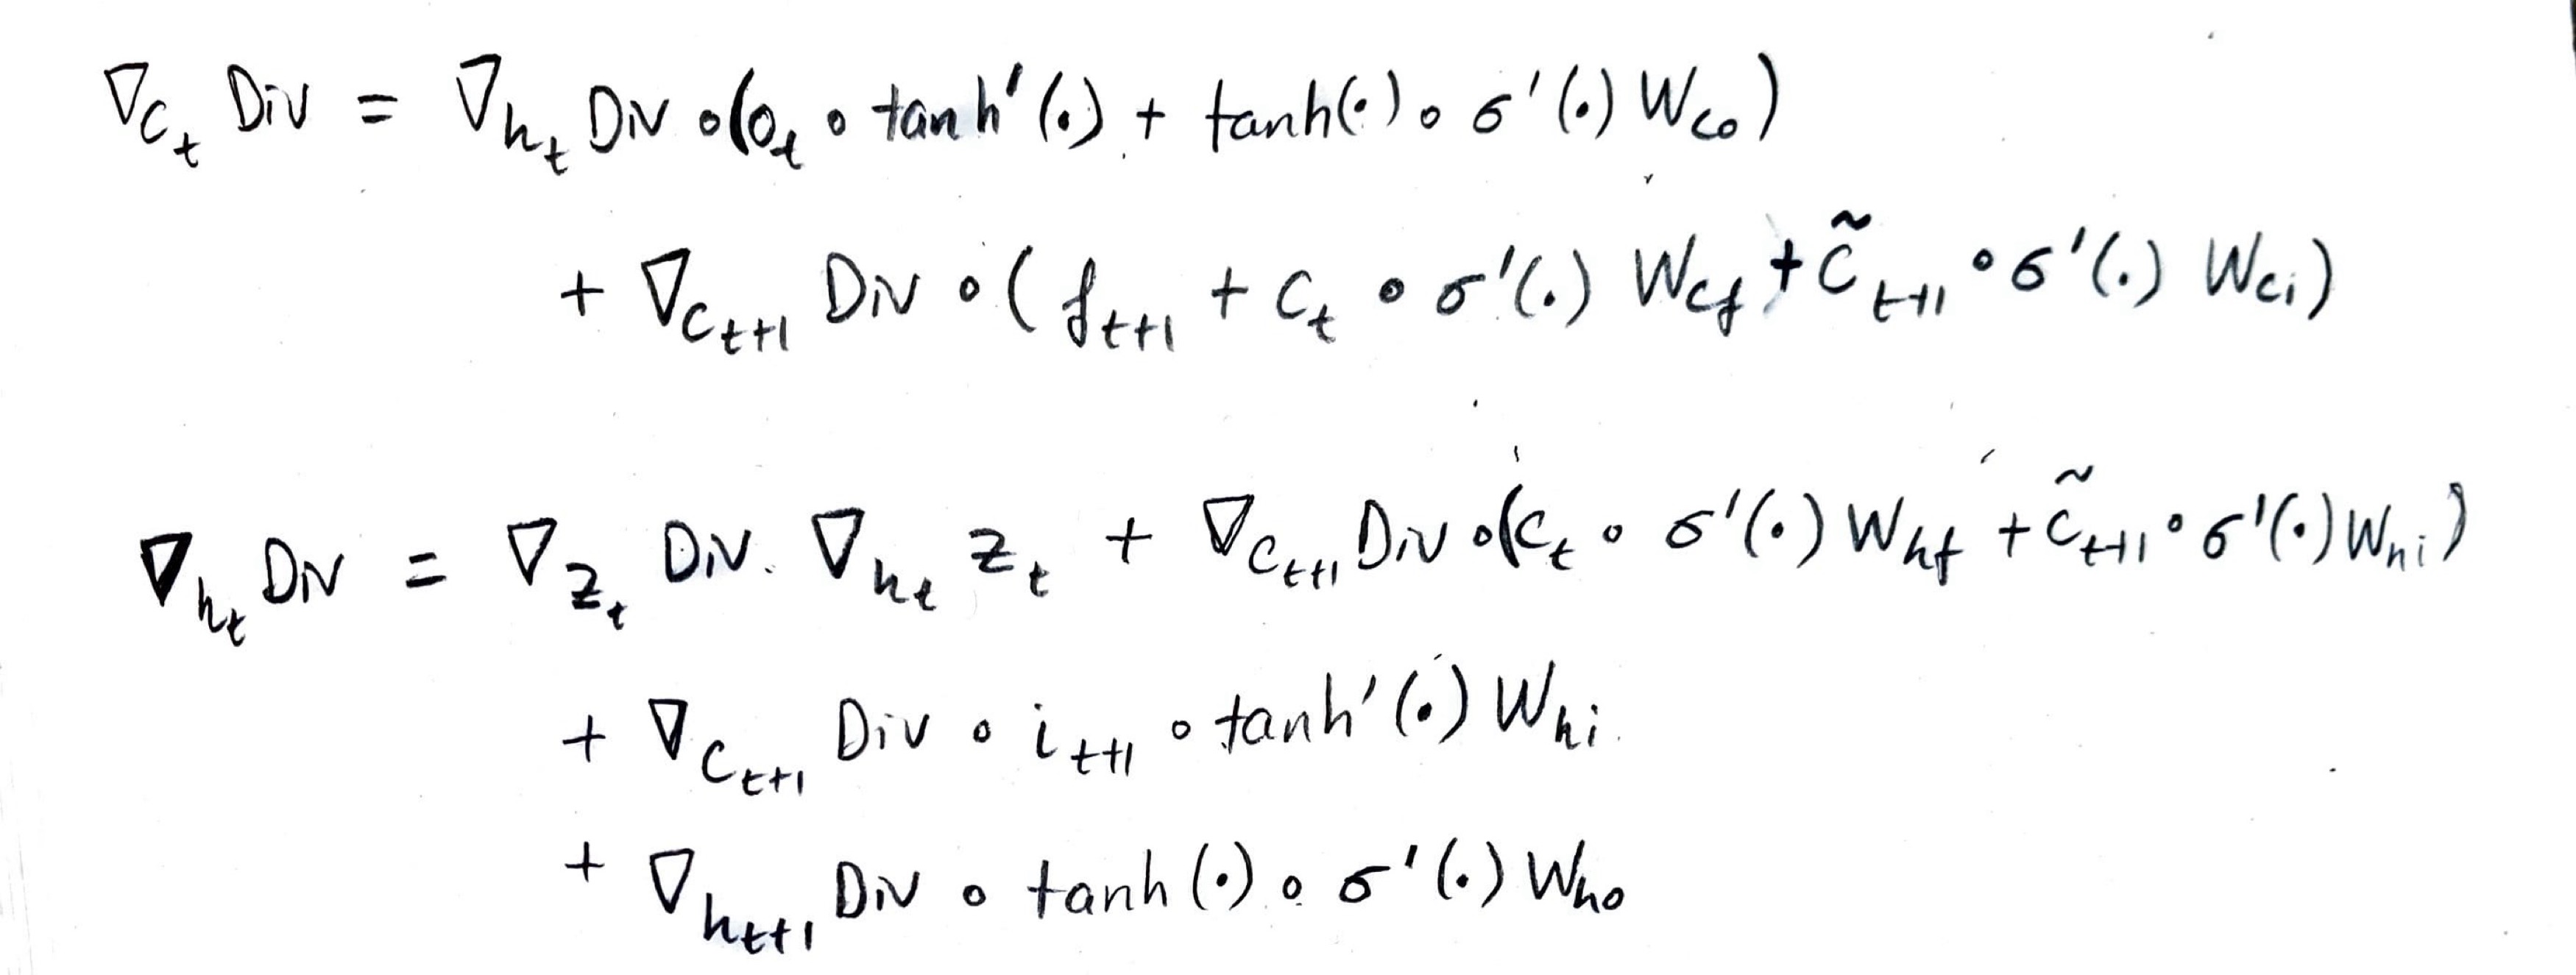 ∇_{C_t} Div = ∇_{h_t} Div ∘ (o_t ∘ tanh'(·) + tanh(·) ∘ σ'(·) W_{co})
+ ∇_{C_{t+1}} Div ∘ (f_{t+1} + C_t ∘ σ'(·) W_{cf} + C̃_{t+1} ∘ σ'(·) W_{ci})
∇_{h_t} Div = ∇_{z_t} Div · ∇_{h_t} z_t + ∇_{C_{t+1}} Div ∘ (C_t ∘ σ'(·) W_{hf} + C̃_{t+1} ∘ σ'(·) W_{hi})
+ ∇_{C_{t+1}} Div ∘ i_{t+1} ∘ tanh'(·) W_{hi}
+ ∇_{h_{t+1}} Div ∘ tanh(·) ∘ σ'(·) W_{ho}